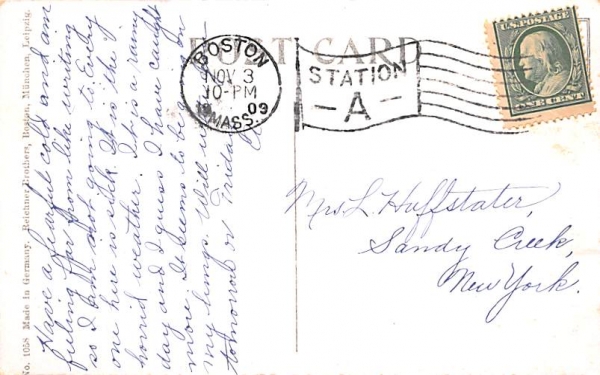 POST CARD
BOSTON
NOV 3
10-PM
09
MASS.
STATION
A
U.S. POSTAGE
ONE CENT
Mrs L. Huffstater,
Sandy Creek,
New York.
Have a fearful cold and am
feeling far from like writing
so I am not going to. Every
one here is sick. It is the
horrid weather. It is a rainy
day and I guess I have caught
more. It seems to be on
my lungs. Will
tomorrow or Friday
No. 1058 Made in Germany. Reichner Brothers, Boston, München, Leipzig.